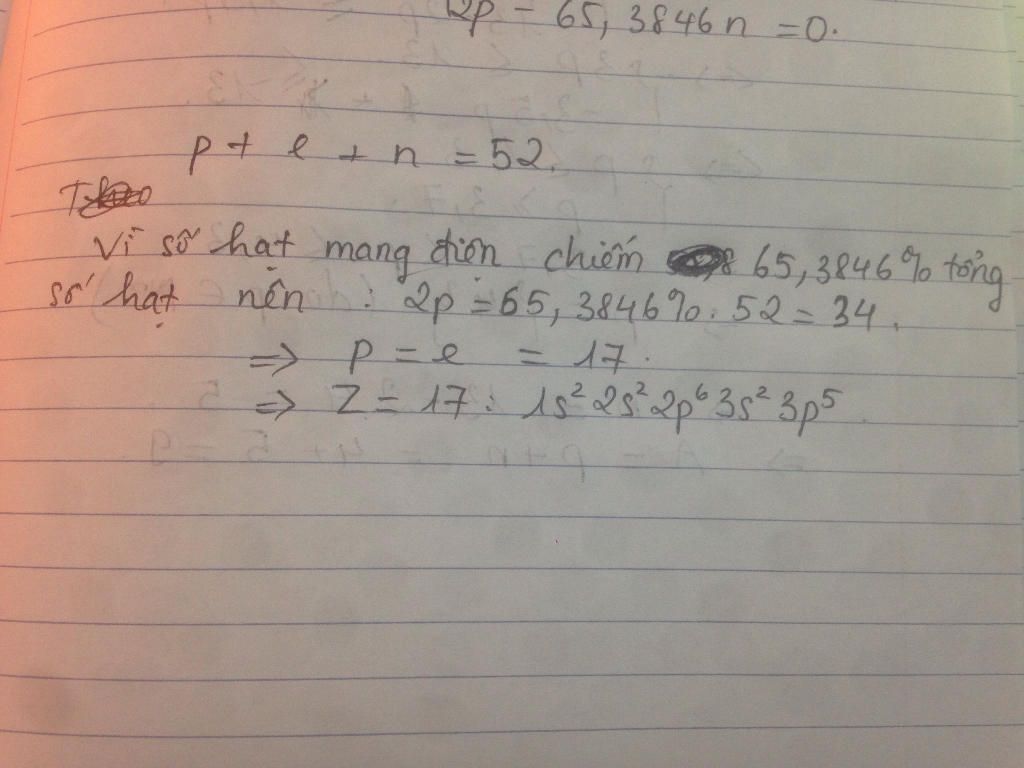 2p - 65,3846n = 0.
p + e + n = 52.
Vì số hạt mang điện chiếm 65,3846% tổng
số hạt nên : 2p = 65,3846%. 52 = 34.
=> p = e = 17.
=> Z = 17 : 1s² 2s² 2p⁶ 3s² 3p⁵